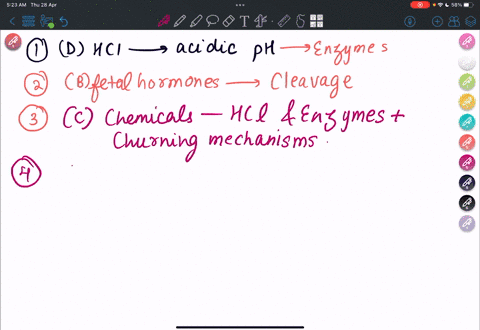 5:23 AM Thu 28 Apr
58%
1 (D) HCl → acidic pH → Enzymes
2 (B) fetal hormones → Cleavage
3 (C) Chemicals — HCl & Enzymes +
Churning mechanisms.
4